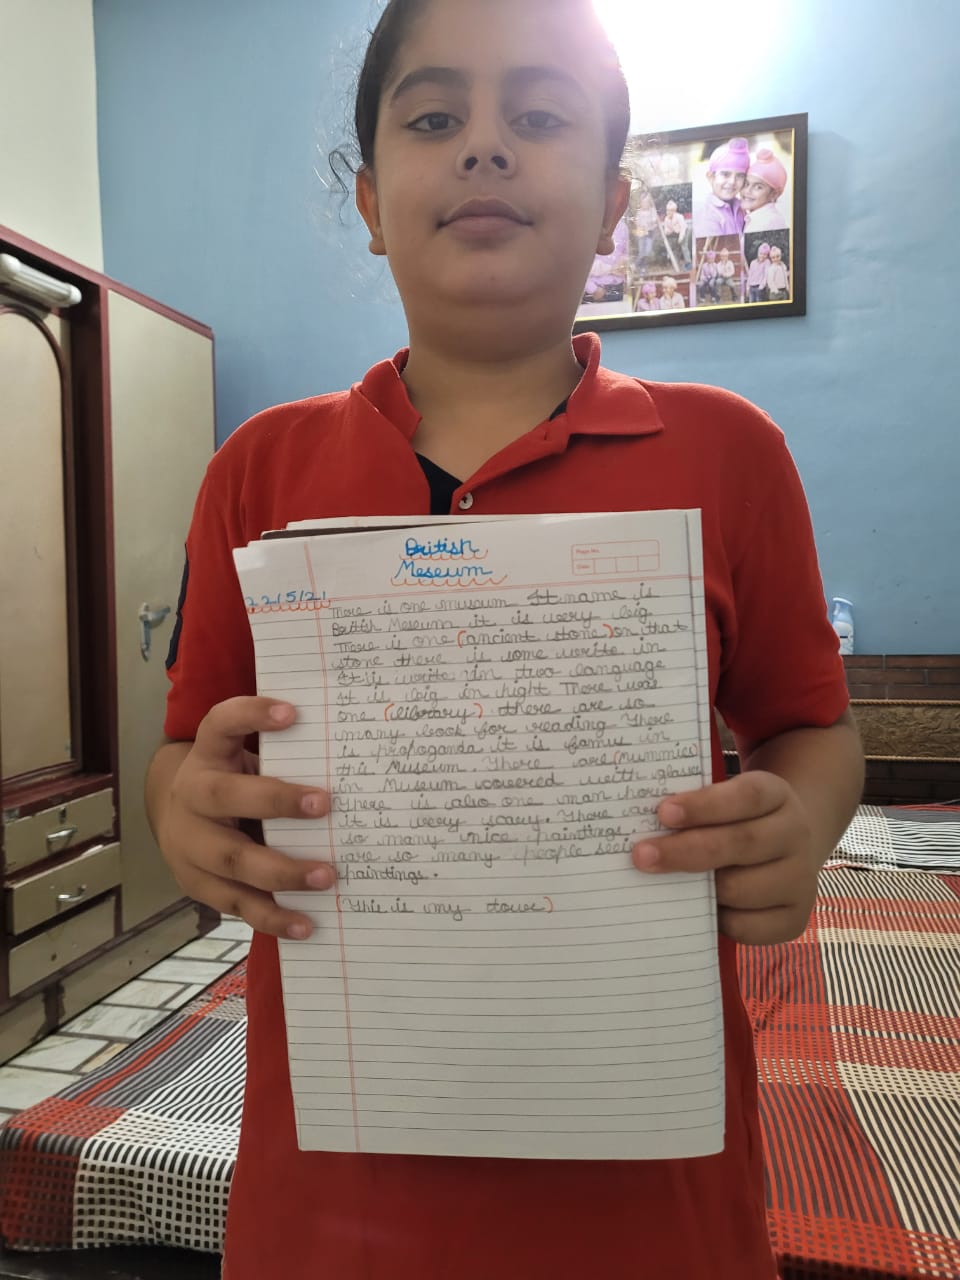 British
Meseum
Page No.
Date
22/5/21
There is one museum It name is
British Meseum it is very big
There is one (ancient stone) on that
stone there is some write in
It is write in two language
It is big in hight There was
one (library) there are so
many book for reading There
is propoganda it is famus in
this Museum. There are (mummies)
in Museum covered with glasses
There is also one man horse
it is very scary. There are
so many nice paintings.
are so many people seei
paintings.
(This is my tour)